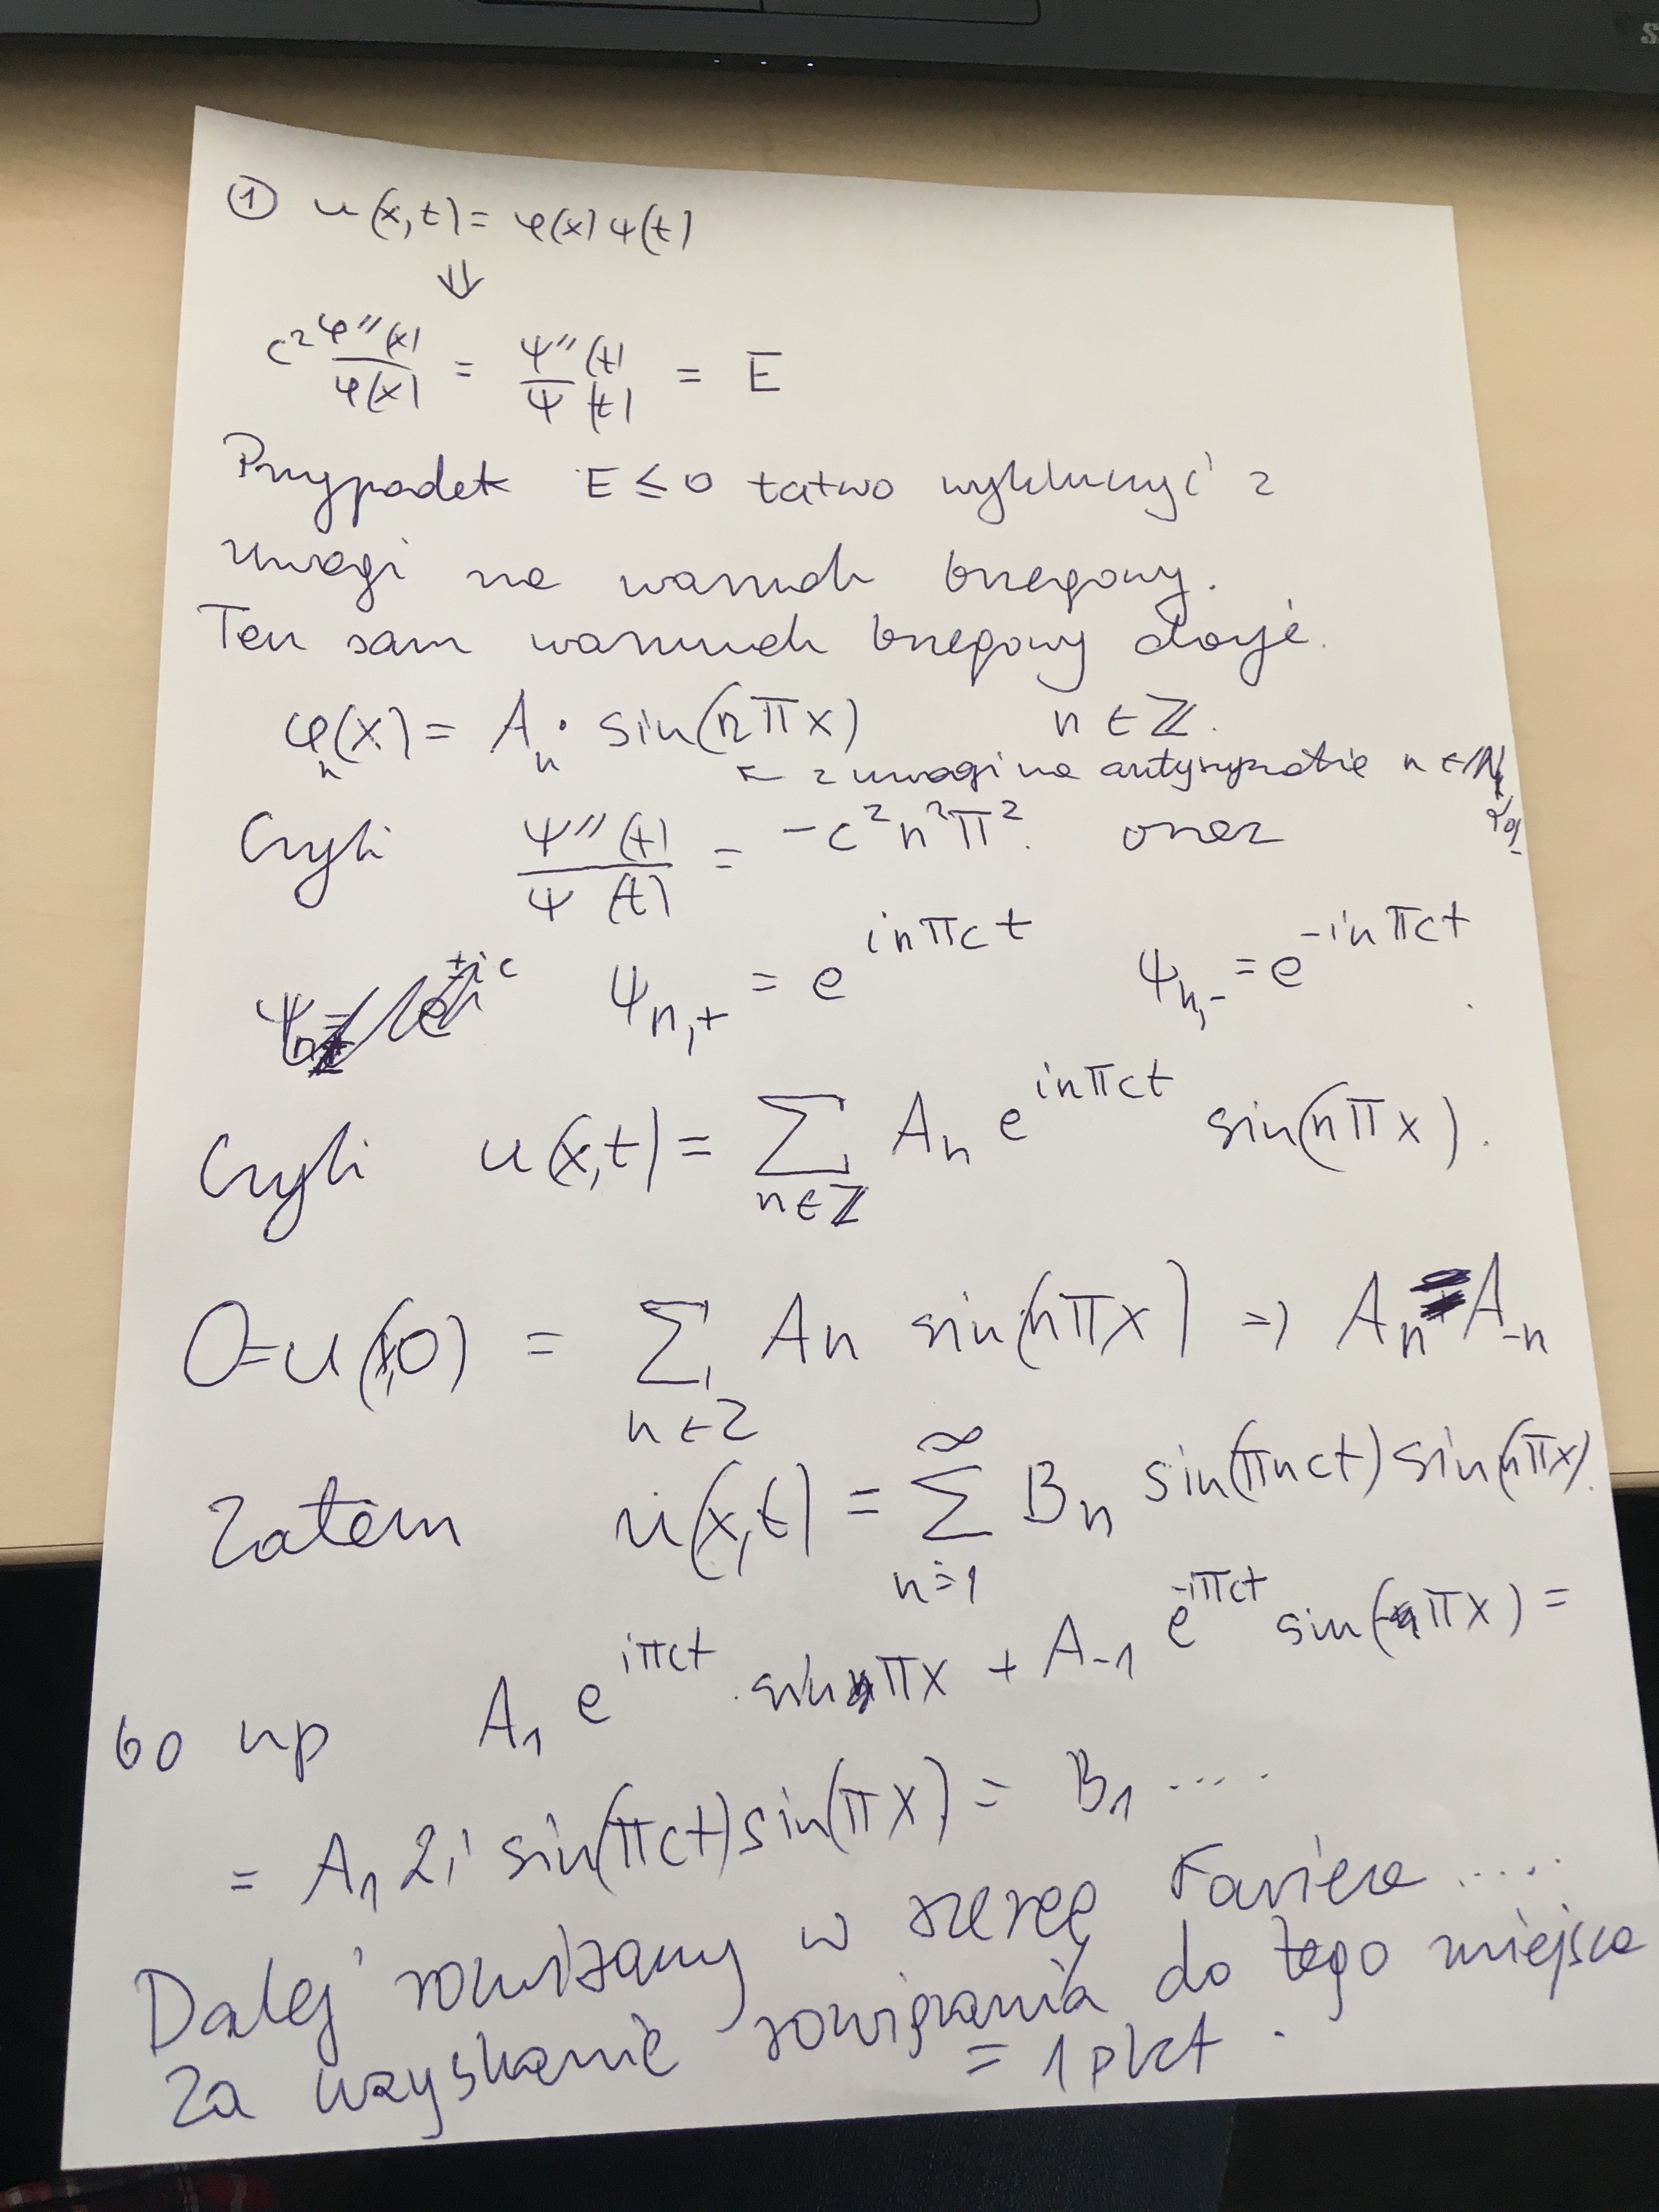 ① u(x,t) = φ(x) ψ(t)
⇓
c² φ''(x)/φ(x) = ψ''(t)/ψ(t) = E
Przypadek E ≤ 0 łatwo wykluczyć z
uwagi na warunek brzegowy.
Ten sam warunek brzegowy daje.
φₙ(x) = Aₙ · sin(nπx) n ∈ ℤ.
← z uwagi na antysymetrię n ∈ ℕ
Czyli ψ''(t)/ψ(t) = -c²n²π². oraz
ψₙ,₊ = e^{inπct} ψₙ,₋ = e^{-inπct}.
Czyli u(x,t) = ∑_{n∈ℤ} Aₙ e^{inπct} sin(nπx).
0 = u(x,0) = ∑_{n∈ℤ} Aₙ sin(nπx) ⇒ Aₙ = A₋ₙ
Zatem u(x,t) = ∑_{n=1}^{∞} Bₙ sin(πnct) sin(nπx).
bo np A₁ e^{iπct} · sin πx + A₋₁ e^{-iπct} sin(-πx) =
= A₁ 2i sin(πct) sin(πx) = B₁ ....
Dalej rozwijamy w szereg Fouriera .....
Za uzyskanie rozwiązania do tego miejsca
= 1 pkt.